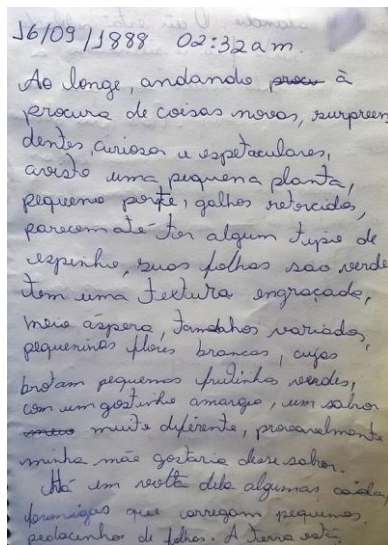 16/09/1888 02:32am.
Ao longe, andando à
procura de coisas novas, surpreen
dentes, curiosas e espetaculares,
avisto uma pequena planta,
pequeno porte, galhos retorcidos,
parecem até ter algum tipo de
espinho, suas folhas são verde
tem uma textura engraçada,
meio áspera, tamanhos variados,
pequeninas flores brancas, cujos
brotam pequenas frutinhas verdes,
com um gostinho amargo, um sabor
muito diferente, provavelmente
minha mãe gostaria desse sabor.
Há em volta dela algumas caída,
formigas que carregam pequenos
pedacinhos de folhas. A terra está